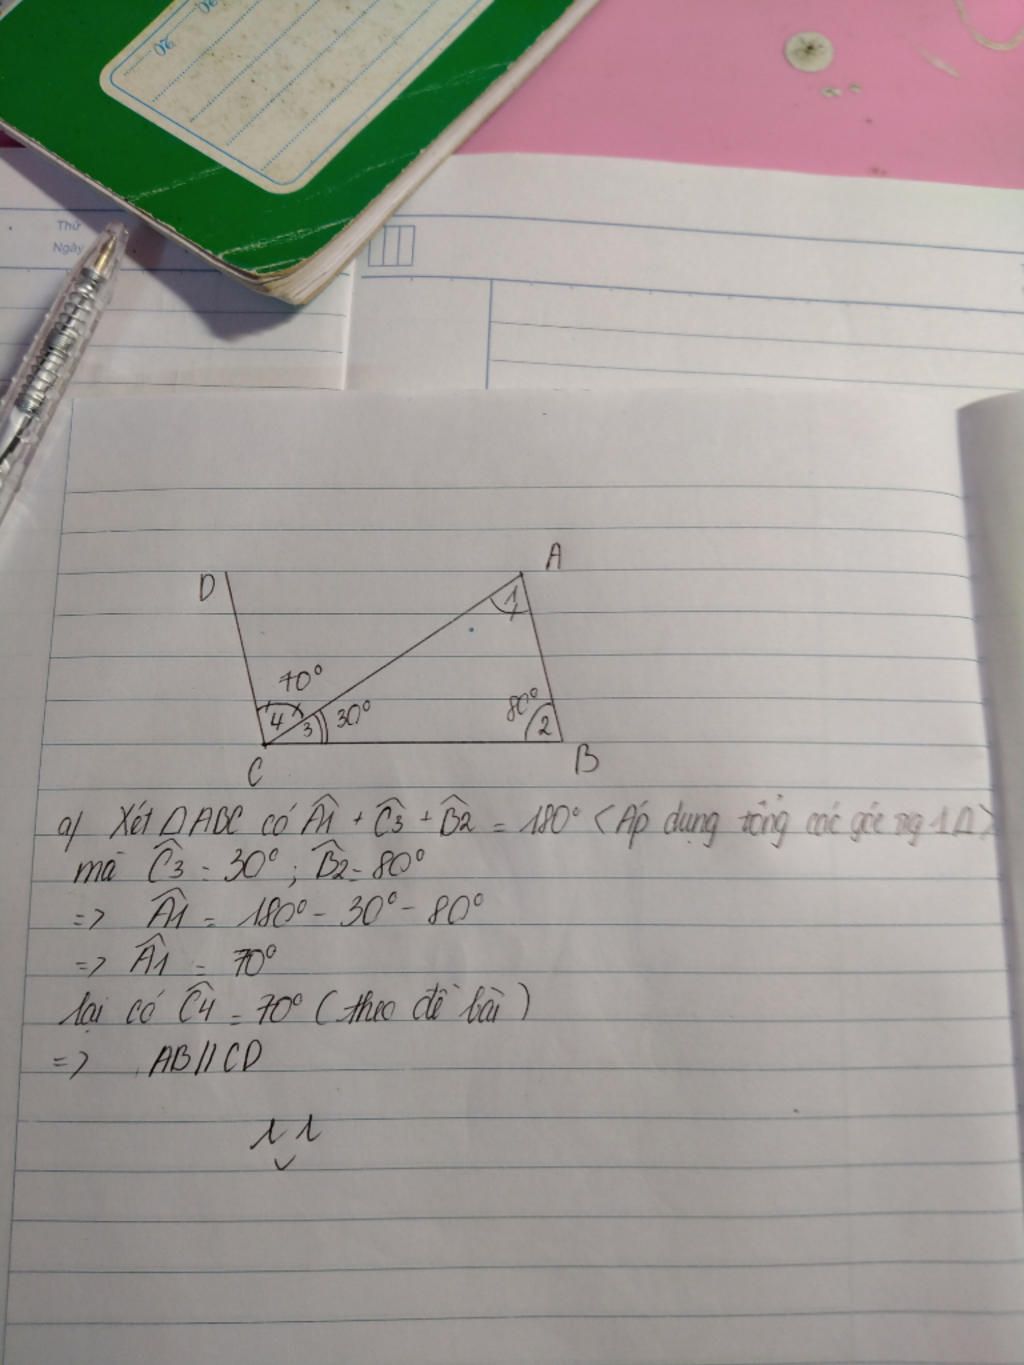 Thứ
Ngày
D
A
1
70°
4
3
30°
80°
2
C
B
a) Xét ΔABC có Â1 + Ĉ3 + B̂2 = 180° <Áp dụng tổng các góc ng 1Δ>
mà Ĉ3 = 30° ; B̂2 = 80°
=> Â1 = 180° - 30° - 80°
=> Â1 = 70°
lại có Ĉ4 = 70° (theo đề bài)
=> AB//CD